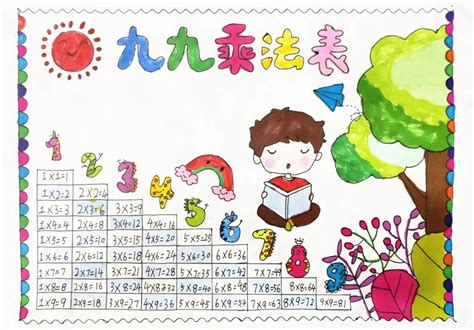 九九乘法表
1 2 3 4 5 6 7 8 9
1×1=1
1×2=2 2×2=4
1×3=3 2×3=6 3×3=9
1×4=4 2×4=8 3×4=12 4×4=16
1×5=5 2×5=10 3×5=15 4×5=20 5×5=25
1×6=6 2×6=12 3×6=18 4×6=24 5×6=30 6×6=36
1×7=7 2×7=14 3×7=21 4×7=28 5×7=35 6×7=42 7×7=49
1×8=8 2×8=16 3×8=24 4×8=32 5×8=40 6×8=48 7×8=56 8×8=64
1×9=9 2×9=18 3×9=27 4×9=36 5×9=45 6×9=54 7×9=63 8×9=72 9×9=81